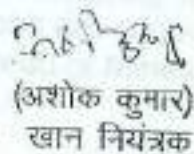 (अशोक कुमार)
खान नियंत्रक